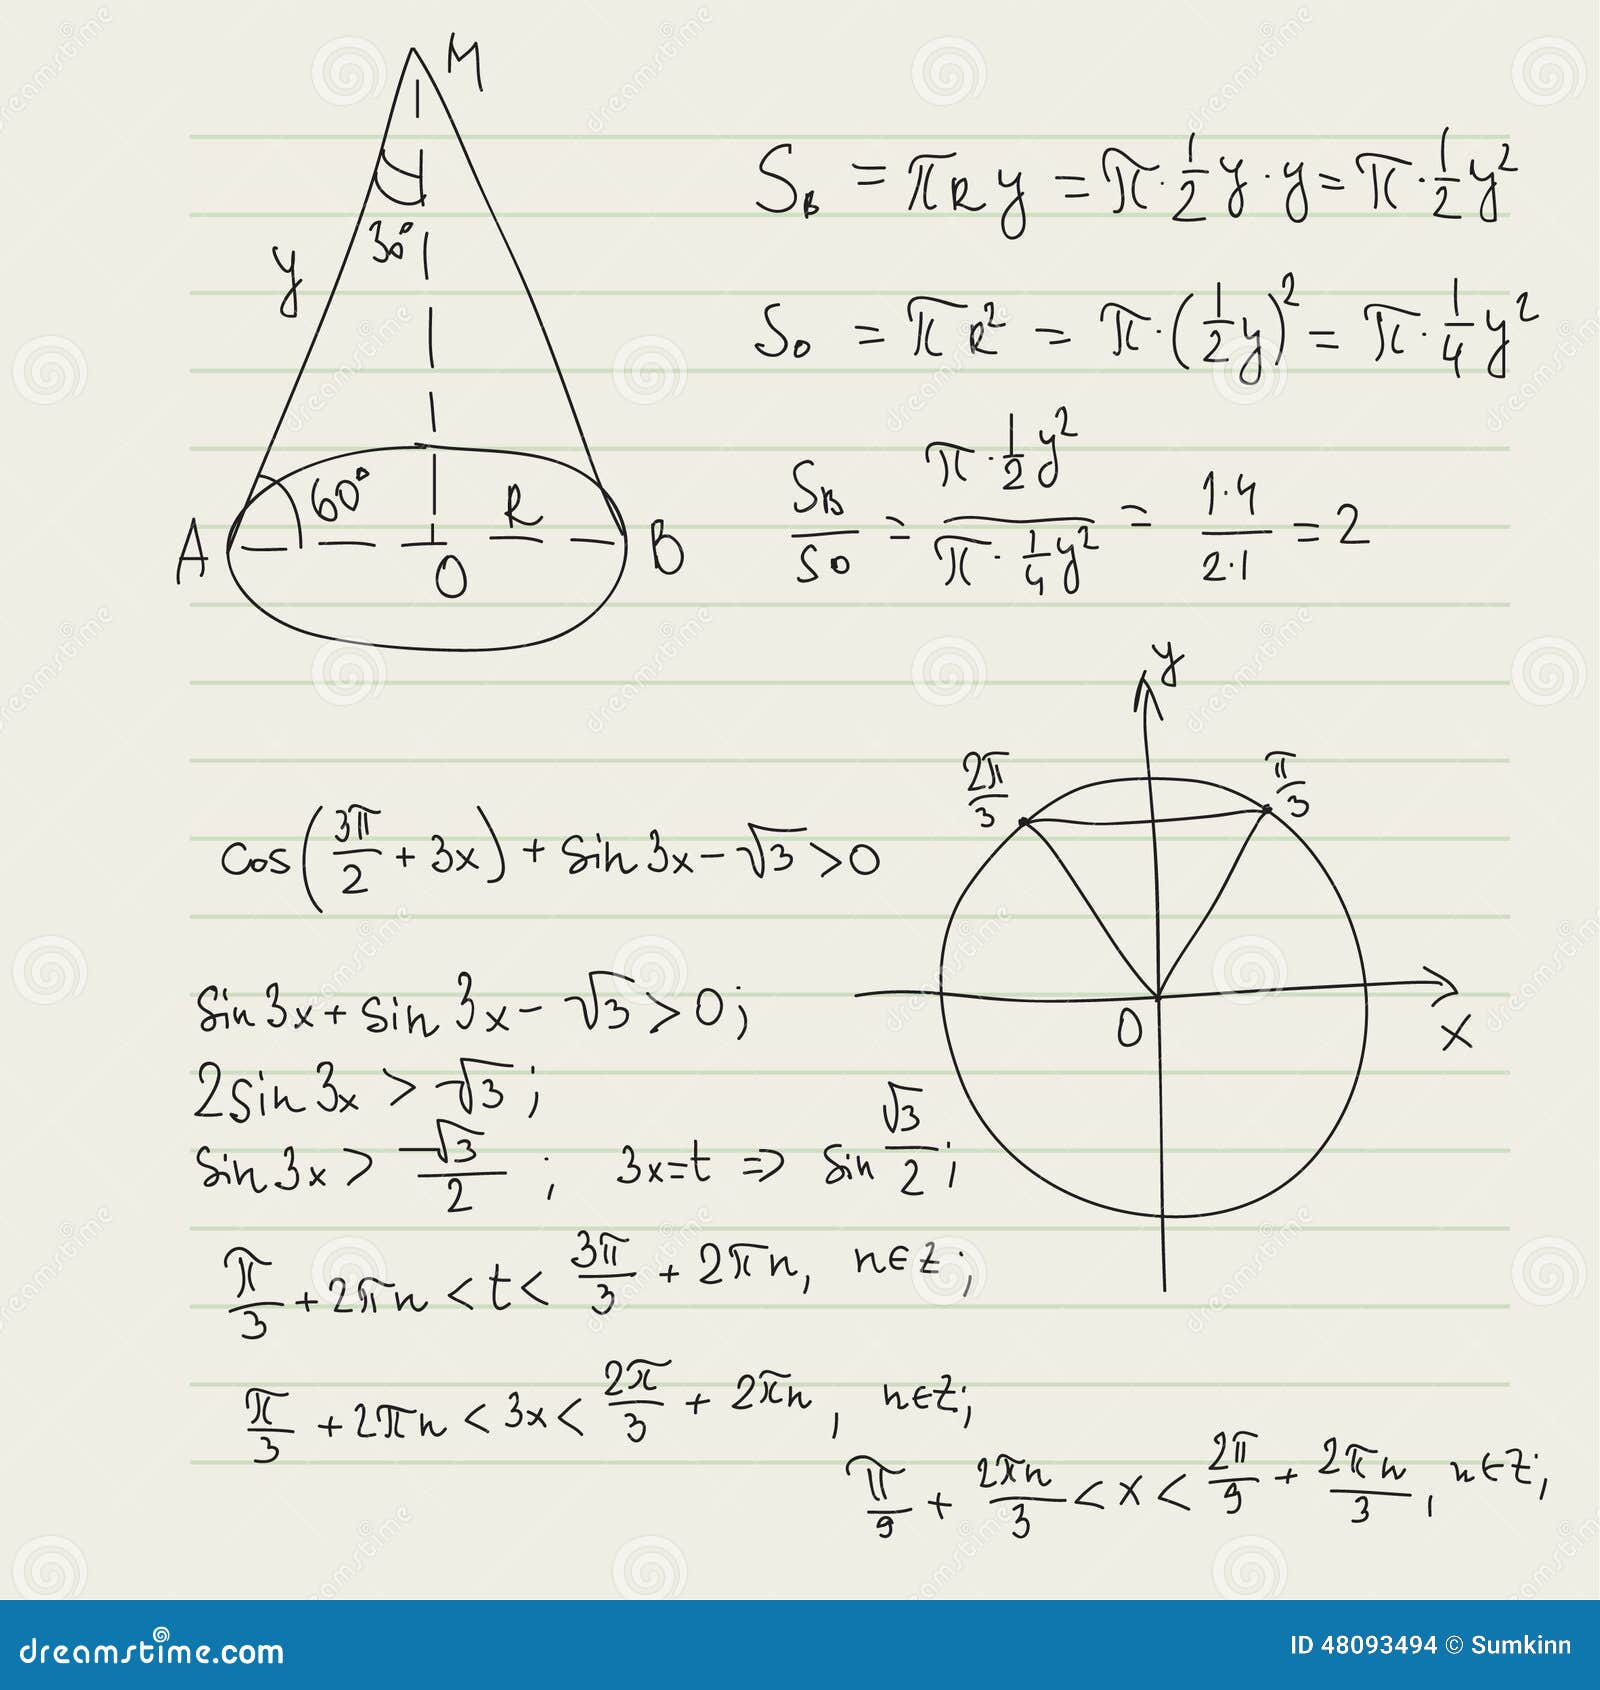 M
30°
y
60°
R
A
O
B
S_B = πRy = π·1/2 y·y = π·1/2 y²
S_O = πR² = π·(1/2 y)² = π·1/4 y²
S_B/S_O = (π·1/2 y²)/(π·1/4 y²) = (1·4)/(2·1) = 2
y
2π/3
π/3
O
x
cos(3π/2 + 3x) + sin3x - √3 > 0
sin3x + sin3x - √3 > 0;
2sin3x > √3;
sin3x > √3/2; 3x=t ⇒ sin √3/2;
π/3 + 2πn < t < 3π/3 + 2πn, n∈Z;
π/3 + 2πn < 3x < 2π/3 + 2πn, n∈Z;
π/9 + 2πn/3 < x < 2π/9 + 2πn/3, n∈Z;
dreamstime.com
ID 48093494 © Sumkinn